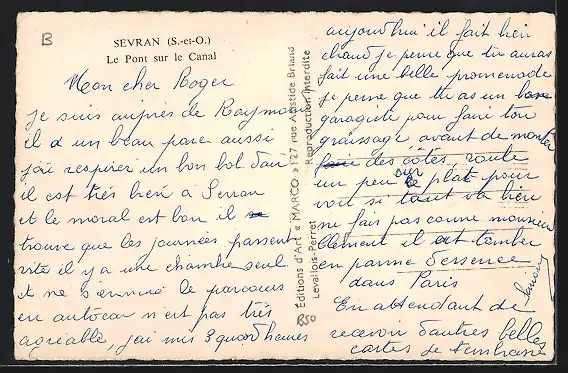 B
SEVRAN (S.-et-O.)
Le Pont sur le Canal
Mon cher Roger
je suis auprès de Raymond
il a un beau parc aussi
j'ai respirer un bon bol d'air
il est très bien à Sevran
et le moral est bon il
trouve que les journées passent
vite il y a une chambre seul
et ne s'ennuie le parcours
en autocar n'est pas très
agréable, j'ai mis 3 quard heures
Éditions d'Art « MARCO » 127 rue Aristide Briand
Levallois-Perret
Reproduction Interdite
R50
aujourd'hui il fait bien
chaud je pense que tu auras
fait une belle promenade
je pense que tu as un bon
garagiste pour faire ton
graissage avant de monter
des côtes, route
un peu sur le plat pour
voir si tout va bien
ne fais pas comme monsieur
Clément il est tomber
en panne d'essence
dans Paris
En attendant de
recevoir d'autres belles
cartes je t'embrasse